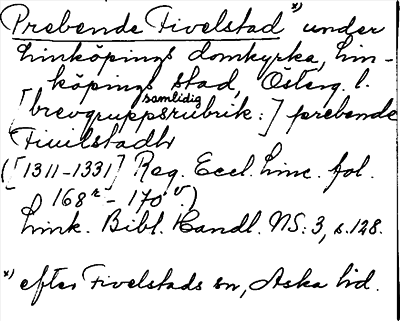 Prebende Fivelstad *) under
Linköpings domkyrka, Lin-
köpings stad, Österg. l.
[brevgruppsrubrik: samtidig] prebende
Fiuilstadh
([1311-1331] Reg. Eccl. Linc. fol.
168r - 170v)
Link. Bibl. Handl. NS: 3, s. 128.
*) efter Fivelstads sn, Aska hd.